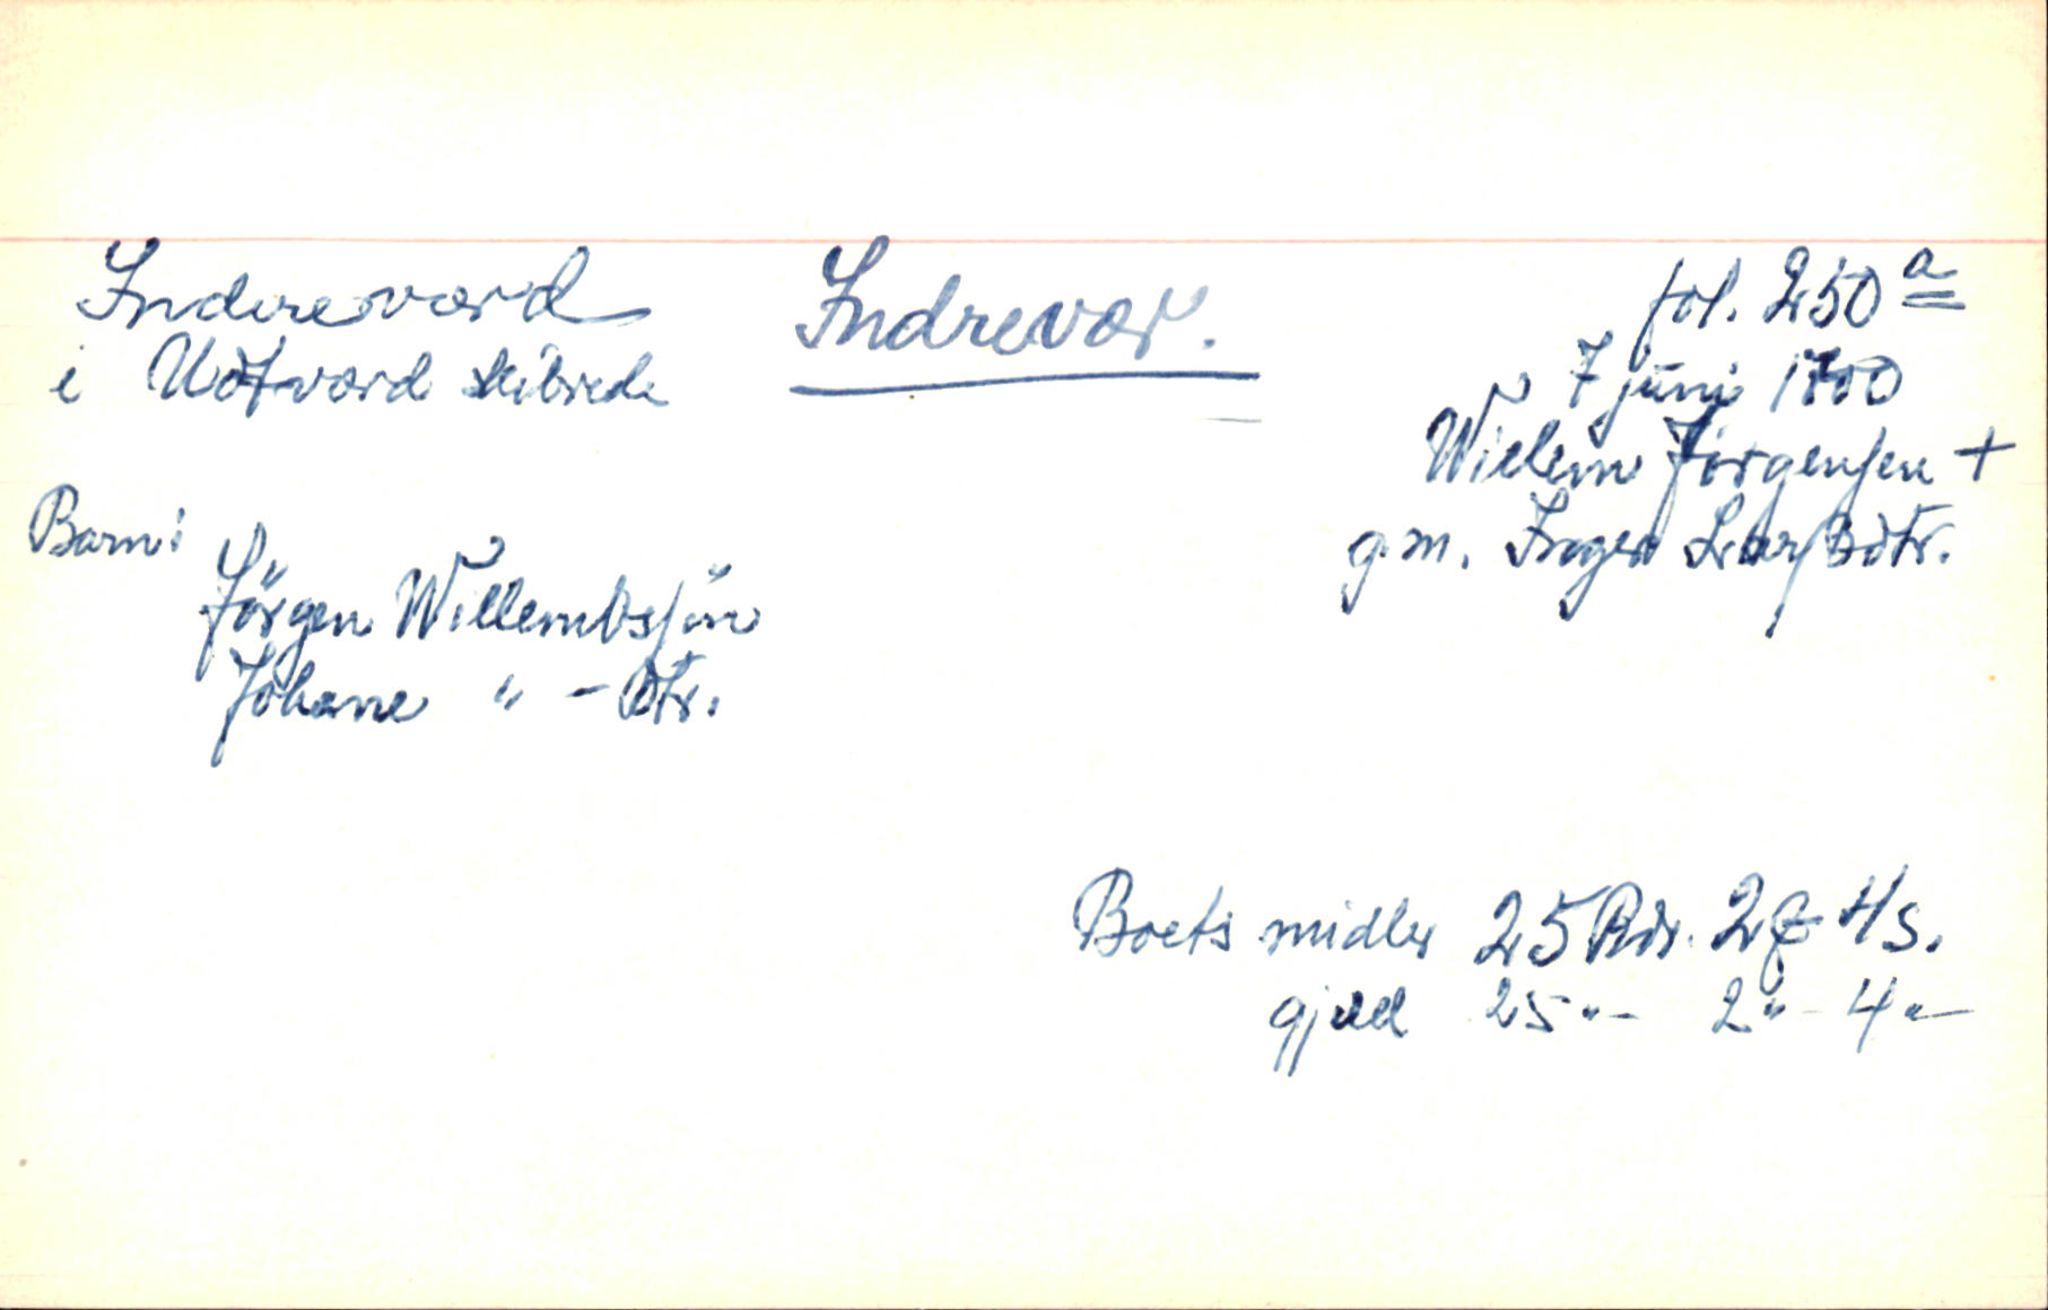 Inderevord
i Udtvord skibrede
Indrevær.
fol. 250 a
7 juni 1700
Willem Jørgensen +
g.m. Inger Larsdtr.
Barn:
Jörgen Willembssön
Johane " - dtr.
Boets midler 25 Rdr. 2 ₰ 4 s.
gjeld 25 " - 2 " - 4 " -